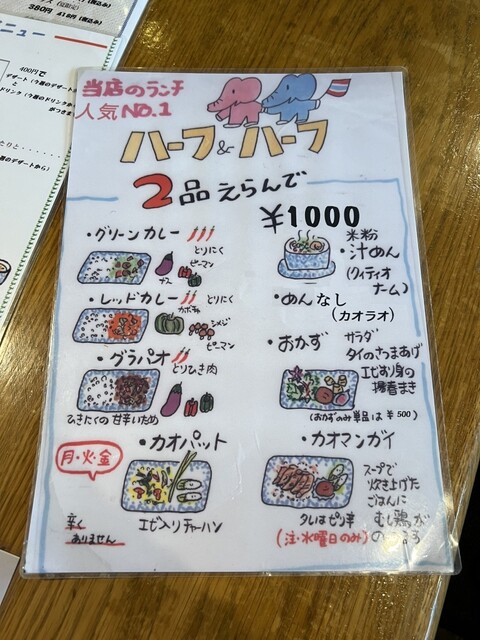 380円 418円(税込み)
ニュー
400円で
デザート(今週のデザートか
と
ドリンク(今週のドリンクか
たりと・・・・・
週のデザートから)
当店のランチ
人気NO.1
ハーフ&ハーフ
2品えらんで
¥1000
・グリーンカレー
とりにく
ナス
ピーマン
・レッドカレー
とりにく
カボチャ
シメジ
ピーマン
・グラパオ
とりひき肉
ひきにくの甘辛いため
米粉
・汁めん
(クィティオ
ナーム)
・めんなし
(カオラオ)
・おかず
サラダ
タイのさつまあげ
エビすり身の
揚春まき
(おかずのみ単品は¥500)
月・火・金
・カオパット
エビ入りチャーハン
辛く
ありません
・カオマンガイ
スープで
炊き上げた
ごはんに
むし鶏が
タレはピリ辛
(注・水曜日のみ)